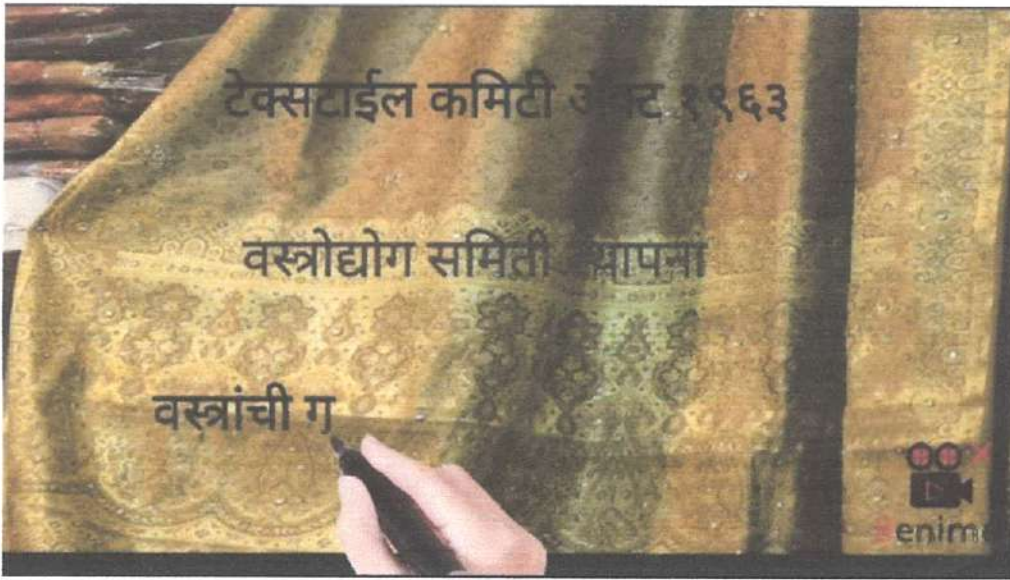 टेक्सटाईल कमिटी ॲक्ट १९६३
वस्त्रोद्योग समिती स्थापना
वस्त्रांची ग
enim